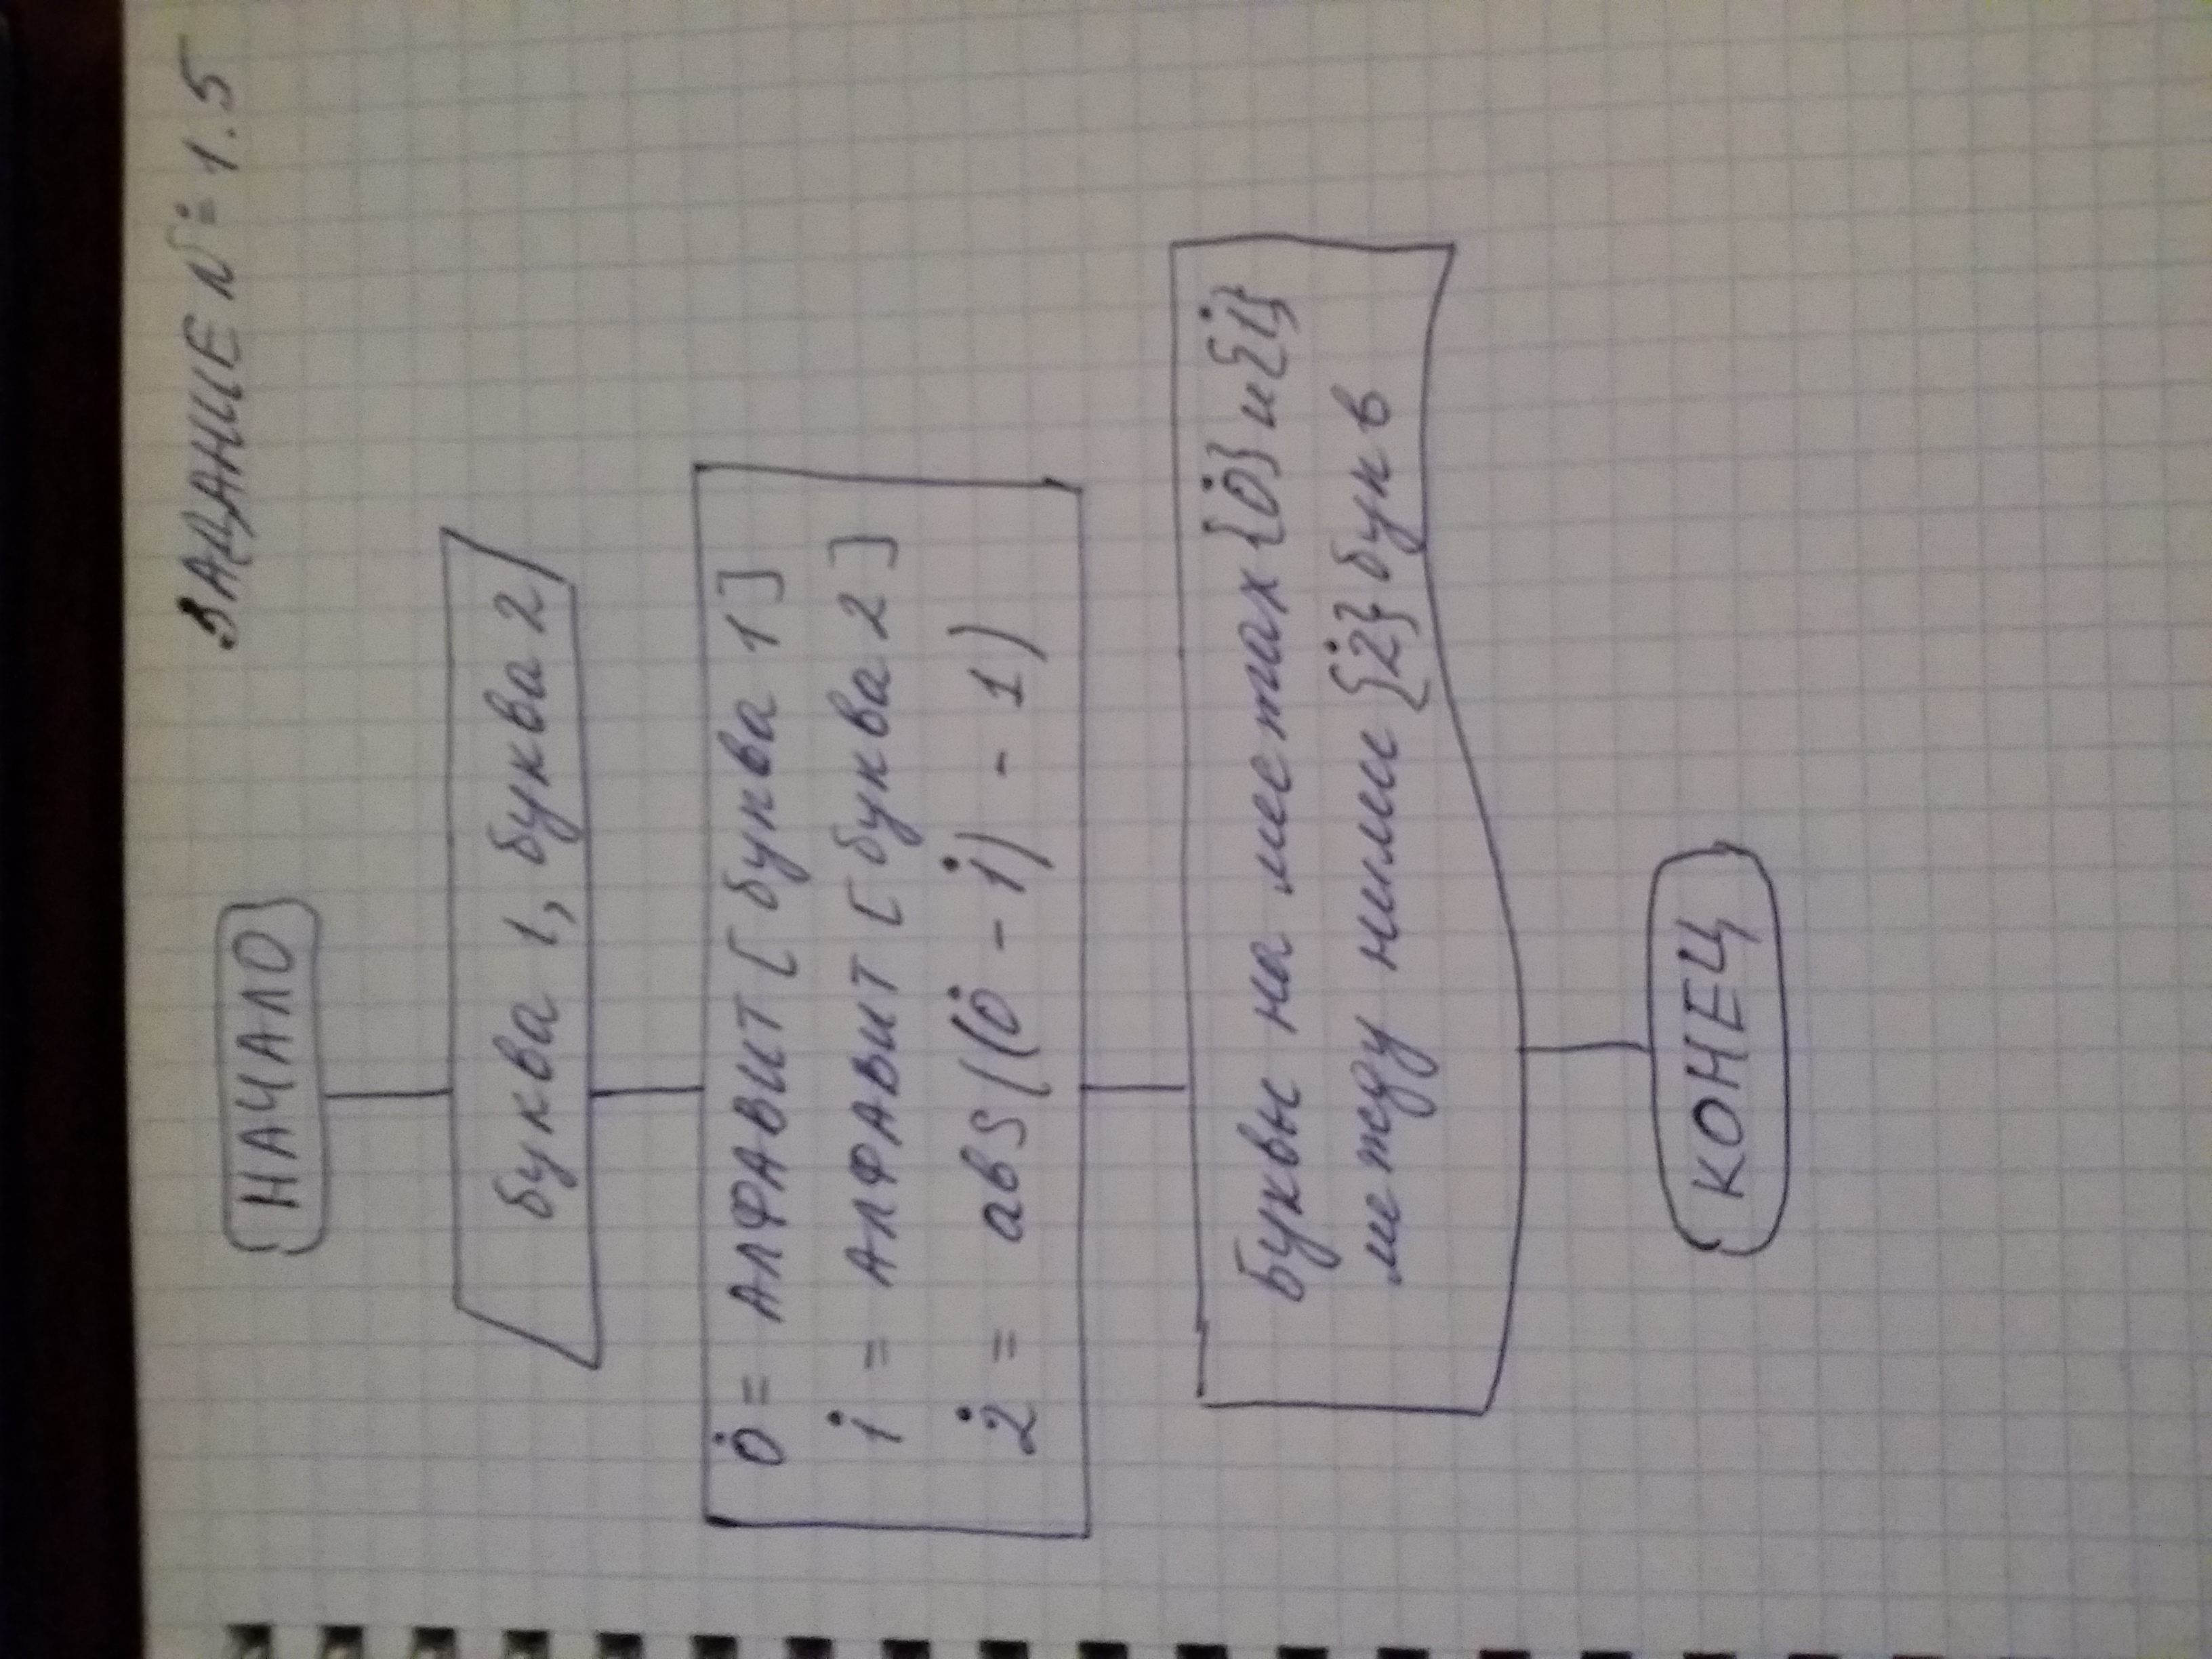 ЗАДАНИЕ № 1.5
НАЧАЛО
буква 1, буква 2
0̇ = АЛФАВИТ [буква 1]
1̇ = АЛФАВИТ [буква 2]
2̇ = abs((0̇ - 1̇) - 1)
Буквы на местах {0̇} и {1̇}
между ними {2̇} букв
КОНЕЦ